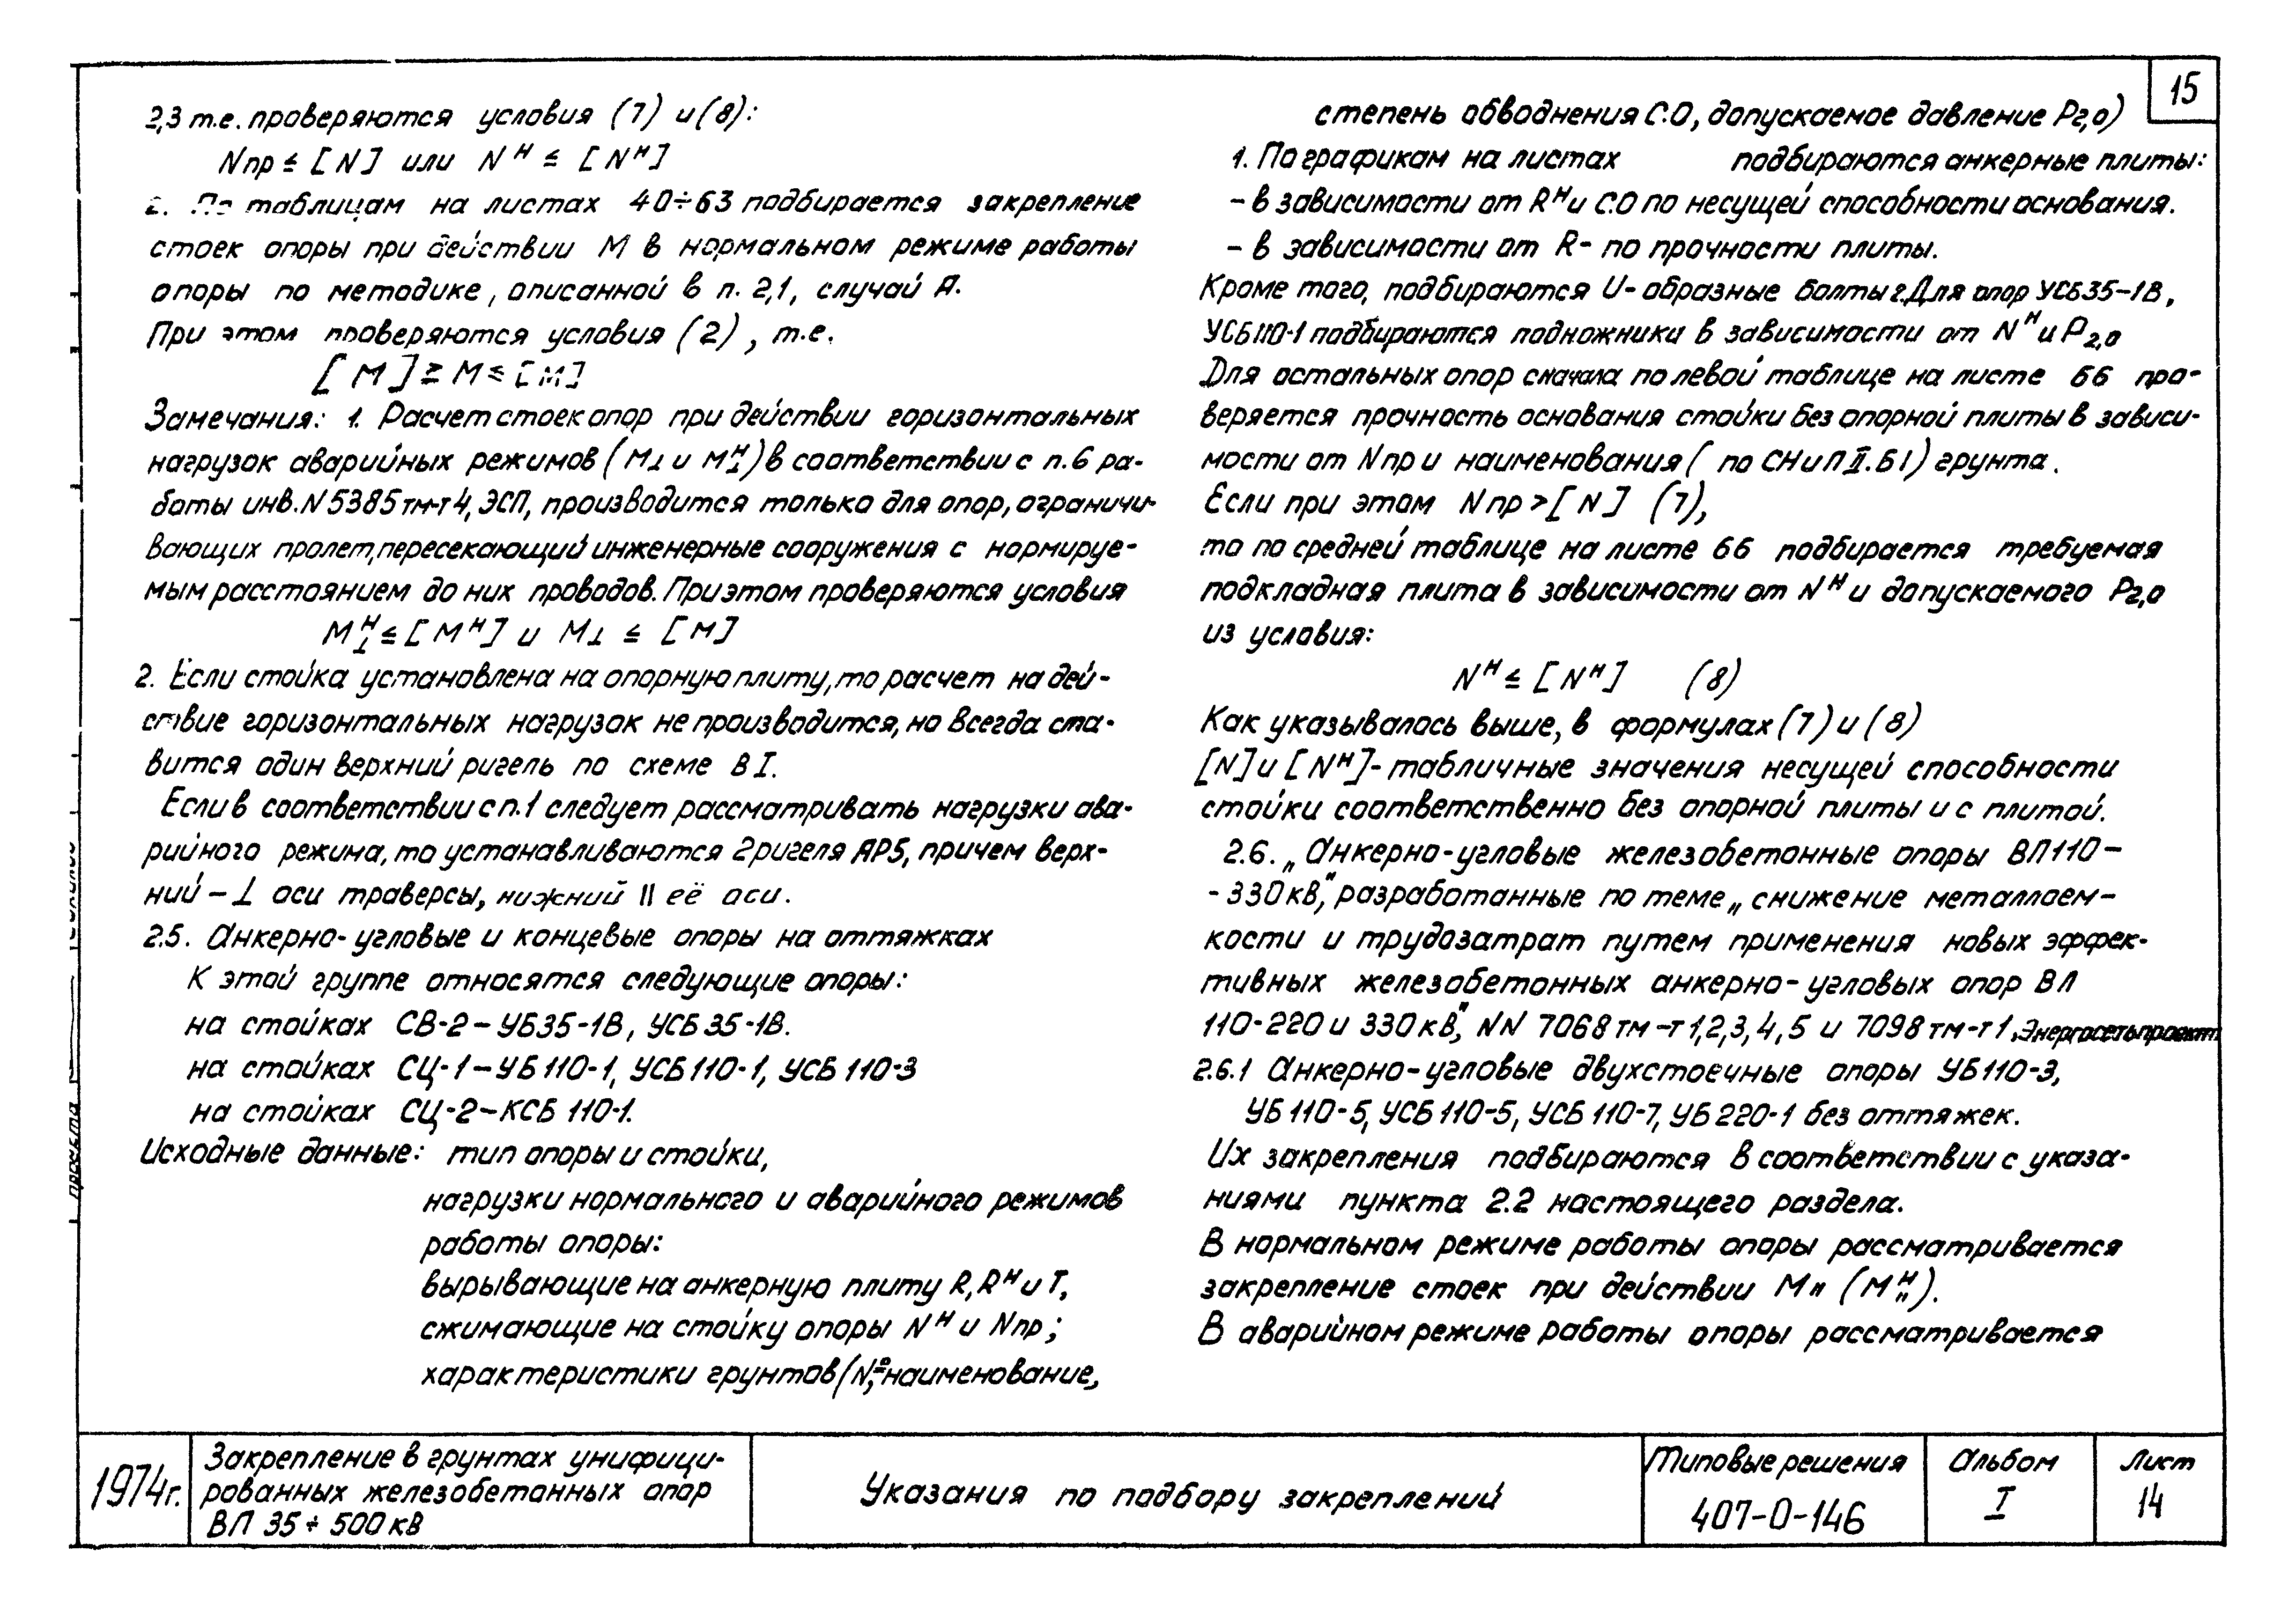 15
2,3 т.е. проверяются условия (7) и (8):
Nпр ≤ [N] или Nᴴ ≤ [Nᴴ]
2. По таблицам на листах 40÷63 подбирается закрепление
стоек опоры при действии М в нормальном режиме работы
опоры по методике, описанной в п. 2,1, случай А.
При этом проверяются условия (2), т.е.
[М] ≥ М ≤ [М]
Замечания: 1. Расчет стоек опор при действии горизонтальных
нагрузок аварийных режимов (М⊥ и М⊥ᴴ) в соответствии с п.6 ра-
боты инв. N 5385тм-т4, ЭСП, производится только для опор, ограничи-
вающих пролет, пересекающий инженерные сооружения с нормируе-
мым расстоянием до них проводов. При этом проверяются условия
М⊥ᴴ ≤ [Мᴴ] и М⊥ ≤ [М]
2. Если стойка установлена на опорную плиту, то расчет на дей-
ствие горизонтальных нагрузок не производится, но всегда ста-
вится один верхний ригель по схеме В I.
Если в соответствии с п.1 следует рассматривать нагрузки ава-
рийного режима, то устанавливаются 2 ригеля АР5, причем верх-
ний – ⊥ оси траверсы, нижний || её оси.
2.5. Анкерно-угловые и концевые опоры на оттяжках
К этой группе относятся следующие опоры:
на стойках СВ-2 – УБ35-1В, УСБ 35-1В.
на стойках СЦ-1 – УБ 110-1, УСБ 110-1, УСБ 110-3
на стойках СЦ-2 – КСБ 110-1.
Исходные данные: тип опоры и стойки,
нагрузки нормального и аварийного режимов
работы опоры:
вырывающие на анкерную плиту R, Rᴴ и Т,
сжимающие на стойку опоры Nᴴ и Nпр;
характеристики грунтов (№, наименование,
степень обводнения С.О, допускаемое давление Р2,0)
1. По графикам на листах подбираются анкерные плиты:
– в зависимости от Rᴴ и С.О по несущей способности основания.
– в зависимости от R – по прочности плиты.
Кроме того, подбираются U-образные болты г. Для опор УСБ35-1В,
УСБ110-1 подбираются подножники в зависимости от Nᴴ и Р2,0
Для остальных опор сначала по левой таблице на листе 66 про-
веряется прочность основания стойки без опорной плиты в зависи-
мости от Nпр и наименования (по СНиП II.Б1) грунта.
Если при этом Nпр > [N] (7),
то по средней таблице на листе 66 подбирается требуемая
подкладная плита в зависимости от Nᴴ и допускаемого Р2,0
из условия:
Nᴴ ≤ [Nᴴ] (8)
Как указывалось выше, в формулах (7) и (8)
[N] и [Nᴴ] - табличные значения несущей способности
стойки соответственно без опорной плиты и с плитой.
2.6. „Анкерно-угловые железобетонные опоры ВЛ110–
-330кв", разработанные по теме „снижение металлоем-
кости и трудозатрат путем применения новых эффек-
тивных железобетонных анкерно-угловых опор ВЛ
110-220 и 330кв", NN 7068тм-т1,2,3,4,5 и 7098тм-т1, Энергосетьпроект
2.6.1 Анкерно-угловые двухстоечные опоры УБ110-3,
УБ 110-5, УСБ 110-5, УСБ 110-7, УБ 220-1 без оттяжек.
Их закрепления подбираются в соответствии с указа-
ниями пункта 2.2 настоящего раздела.
В нормальном режиме работы опоры рассматривается
закрепление стоек при действии М॥ (М॥ᴴ).
В аварийном режиме работы опоры рассматривается
проекта
1974г.
Закрепление в грунтах унифици-
рованных железобетонных опор
ВЛ 35 ÷ 500 кв
Указания по подбору закреплений
Типовые решения
407-0-146
Альбом
I
Лист
14